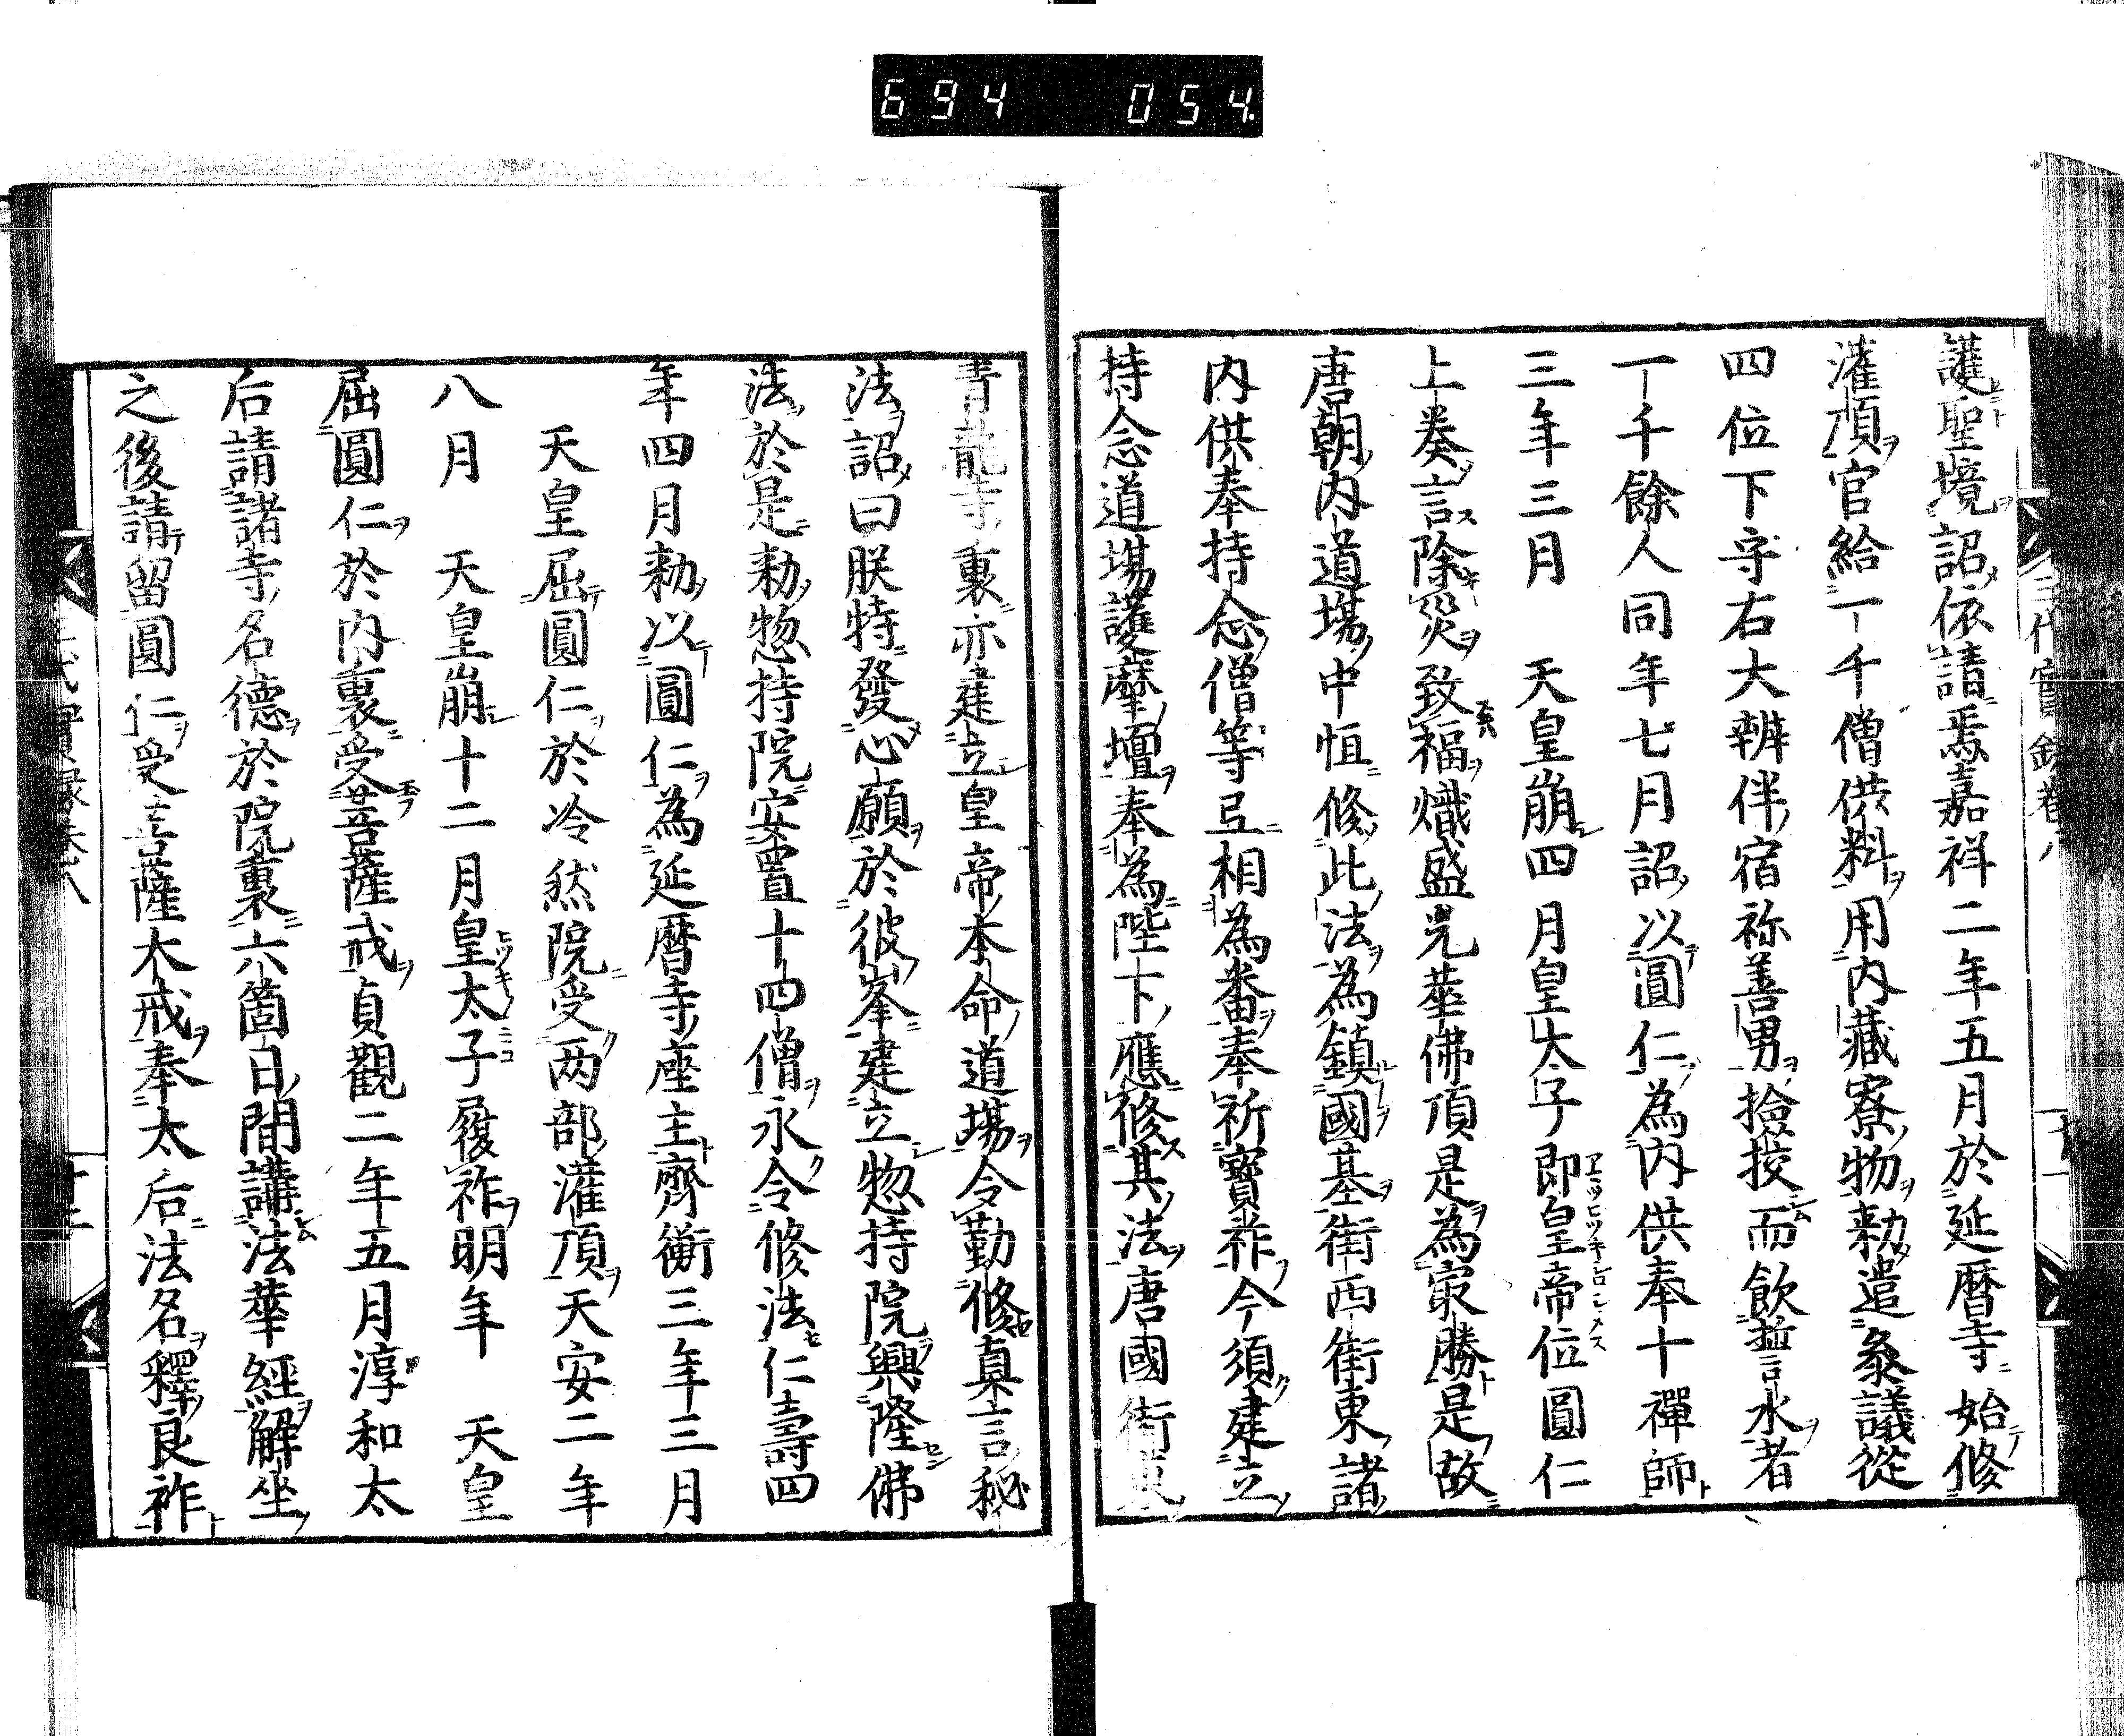 694 054
護聖境詔依請焉嘉祥二年五月於延暦寺始修
灌頂官給一千僧供料用内藏寮物勅遣叅議從
四位下守右大辨伴宿祢善男撿挍而飲誓水者
一千餘人同年七月詔以圓仁為内供奉十禪師
三年三月 天皇崩四月皇太子即皇帝位圓仁
上奏言除災致福熾盛光佛頂是為㝡勝是故
唐朝内道場中恒修此法為鎮國基街西街東諸
内供奉持念僧等互相為番奉祈寶祚今須建立
持念道場護摩壇奉為陛下應修其法唐國街東
青龍寺裏亦建立皇帝本命道場令勤修真言秘
法詔曰朕特發心願於彼峯建立惣持院興隆佛
法於是勅惣持院安置十四僧永令修法仁壽四
年四月勅以圓仁為延暦寺座主齊衡三年三月
天皇屈圓仁於冷然院受两部灌頂天安二年
八月 天皇崩十二月皇太子履祚明年 天皇
屈圓仁於内裏受菩薩戒貞觀二年五月淳和太
后請諸寺名德於院裏六箇日間講法華經解坐
之後請留圓仁受菩薩大戒奉太后法名釋良祚
三代實録卷八
十二